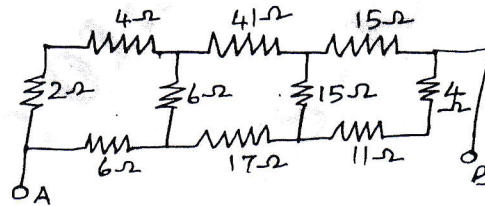 4Ω 41Ω 15Ω
2Ω 6Ω 15Ω 4Ω
6Ω 17Ω 11Ω
A B